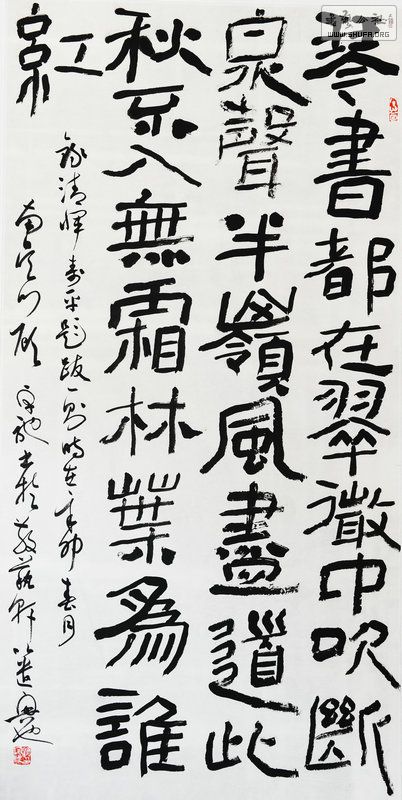 琴書都在翠微中吹斷
泉聲半嶺風盡道此
秋不入無霜林葉爲誰
紅
錄清惲壽平題跋一則時在辛卯春月
WWW.SHUFA.ORG